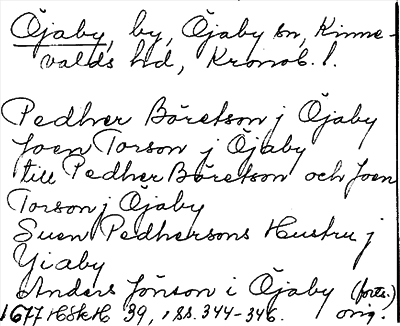 Öjaby, by, Öjaby sn, Kinne-
valds hd, Kronob. l.
Pedher Böretson j Öjaby
Joen Torson j Öjaby
till Pedher Böretson och Joen
Torson j Öjaby
Suen Pedhersons Hustru j
Yiaby
Anders Jönson i Öjaby (forts.)
1677 HSkH 39, 1 ss. 344-346. orig.